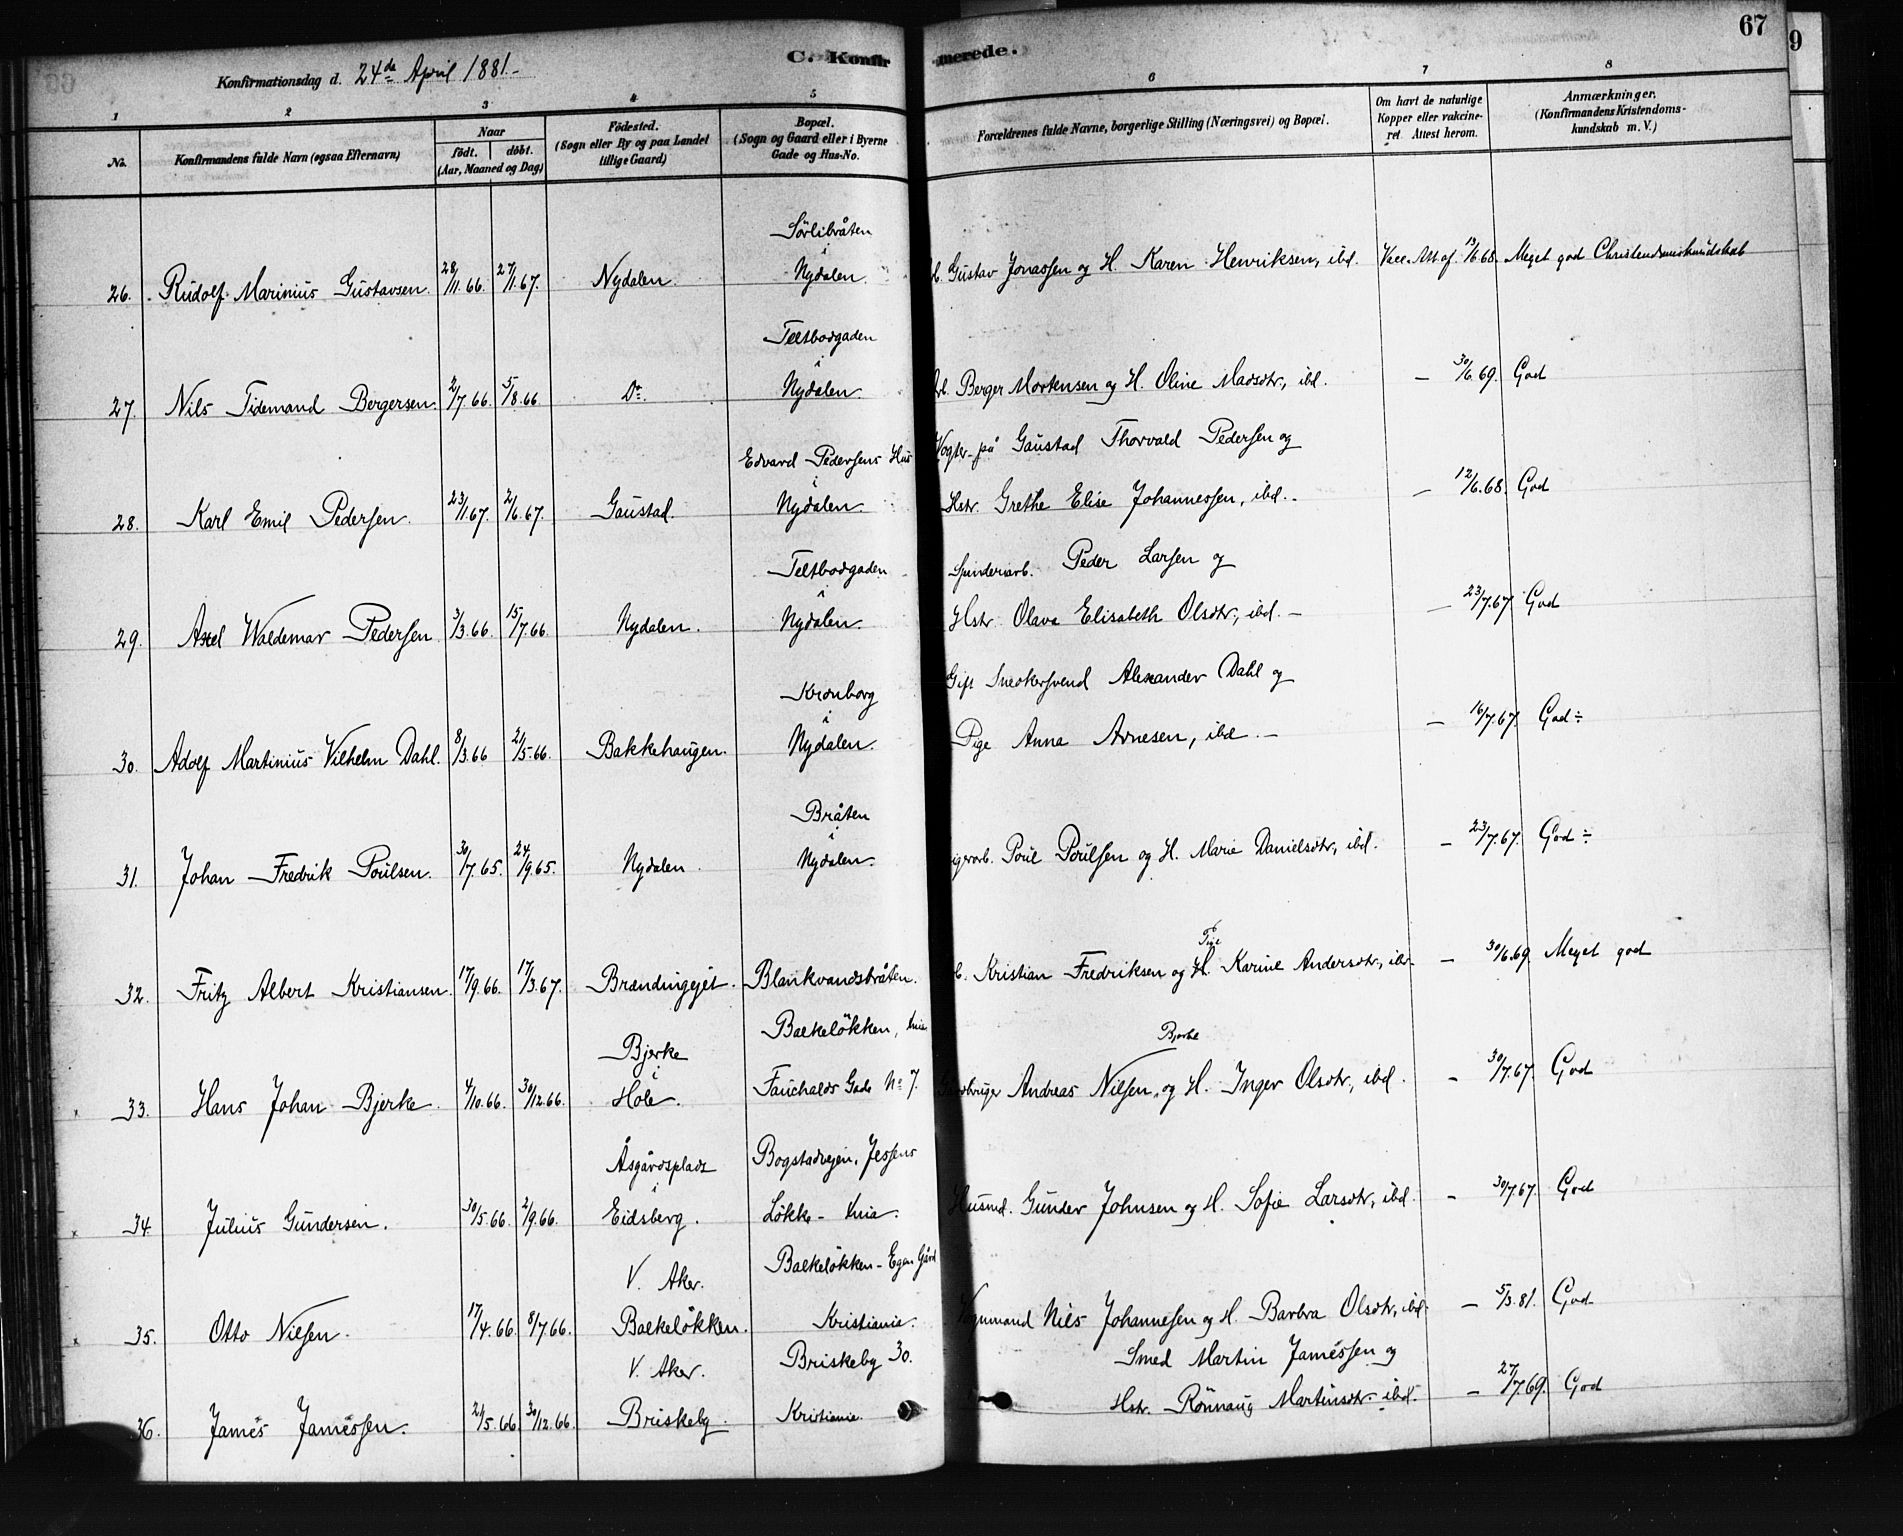 67
9
C. Konfirmerede.
Konfirmationsdag d. 24de April 1881.
1 2 3 4 5 6 7 8
No. Konfirmandens fulde Navn (ogsaa Efternavn) Naar født. døbt. (Aar, Maaned og Dag) Fødested. (Sogn eller By og paa Landet tillige Gaard) Bopæl. (Sogn og Gaard eller i Byerne Gade og Hus-No. Forældrenes fulde Navne, borgerlige Stilling (Næringsvei) og Bopæl. Om havt de naturlige Kopper eller vakcineret. Attest herom. Anmærkninger. (Konfirmandens Kristendomskundskab m. V.)
Sörlibråten i
26. Rudolf Marinius Gustavsen. 28/11.66. 27/1.67. Nydalen. Nydalen. Gustav Jonassen og H. Karen Henriksen, ibd. Vacc. Att af 13/6 68. Meget god Christendomskundskab
Teltbodgaden i
27 Nils Tidemand Bergersen. 2/7.66. 5/8.66 Do. Nydalen. Berger Mortensen og H. Oline Madsdtr, ibd. — 30/6.69. God
Edvard Pedersens Hus i Vogter på Gaustad Thorvald Pedersen og
28. Karl Emil Pedersen. 23/1.67. 2/6.67. Gaustad. Nydalen. Hstr. Grethe Elise Johannessen, ibd. — 12/6.68. God
Teltbodgaden i Spinderiarb. Peder Larsen og
29. Axel Waldemar Pedersen 3/3.66. 15/7.66. Nydalen. Nydalen. Hstr. Olava Elisabeth Olsdtr, ibd. — 23/7.67. God
Kronborg i Gift Snedkersvend Alexander Dahl og
30. Adolf Martinius Vilhelm Dahl. 8/3.66 2/5.66. Bakkehaugen. Nydalen. Pige Anna Arnesen, ibd. — 16/7.67. God ÷
Bråten i
31. Johan Fredrik Poulsen. 30/7.65. 24/9.65. Nydalen. Nydalen. Poul Poulsen og H. Marie Danielsdtr, ibd. — 23/7.67. God ÷
Pige
32. Fritz Albert Kristiansen. 17/9.66. 17/3.67. Brændingejet. Blankvandsbråten. Kristian Fredriksen og H. Karine Andersdtr, ibd — 30/6.69. Meget god
Bjerke i Balkeløkken, Kria Bjerke
33. Hans Johan Bjerke. 4/10.66. 30/12.66. Hole. Fauchalds Gade No 7. Gårdbruger Andreas Nilsen og H. Inger Olsdtr, ibd. — 30/7.67. God
Åsgårdsplads i Bogstadvejen, Jessens
34. Julius Gundersen. 30/5.66. 2/9.66. Eidsberg. Løkke - Kria. Husmd. Gunder Johnsen og H. Sofie Larsdtr, ibd. — 30/7.67. God
V. Aker. Balkeløkken - Egen Gård
35. Otto Nilsen. 17/4.66. 8/7.66. Balkeløkken. Kristiania. Vognmand Nils Johannesen og H. Barbra Olsdtr, ibd. — 5/3.81. God
V. Aker. Briskeby 30. Smed Martin Jamessen og
36. James Jamessen. 21/5.66 30/12.66. Briskeby. Kristiania. Hstr. Rönnaug Martinsdtr. ibd. — 27/7.69. God